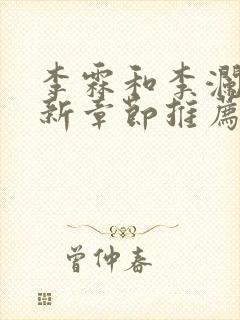 李霖和李瀾
新章節推薦
曾仲春